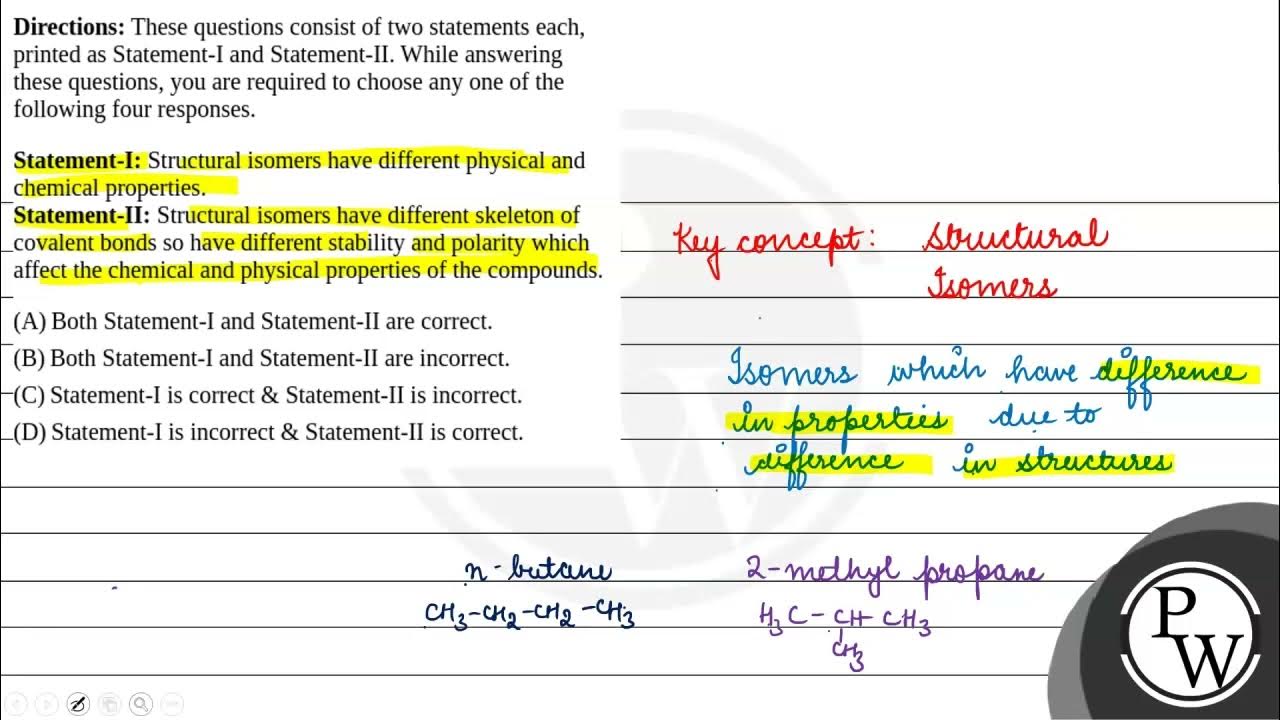 Directions: These questions consist of two statements each,
printed as Statement-I and Statement-II. While answering
these questions, you are required to choose any one of the
following four responses.
Statement-I: Structural isomers have different physical and
chemical properties.
Statement-II: Structural isomers have different skeleton of
covalent bonds so have different stability and polarity which
affect the chemical and physical properties of the compounds.
(A) Both Statement-I and Statement-II are correct.
(B) Both Statement-I and Statement-II are incorrect.
(C) Statement-I is correct & Statement-II is incorrect.
(D) Statement-I is incorrect & Statement-II is correct.
Key concept: Structural
Isomers
Isomers which have difference
in properties due to
difference in structures
n-butane
CH3-CH2-CH2-CH3
2-methyl propane
H3C-CH-CH3
CH3
P
W